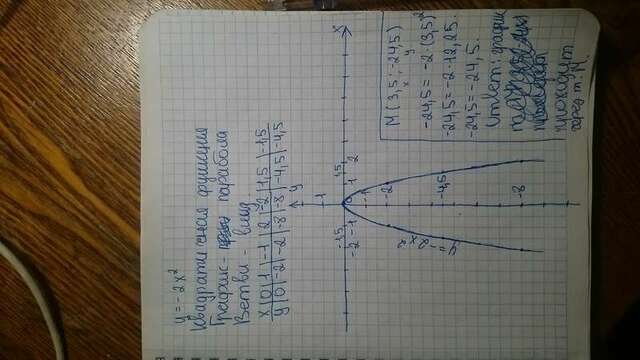 y = -2x²
Квадратичная функция
График - парабола
Ветви - вниз
x | 0 | 1 | -1 | 2 | -2 | 1,5 | -1,5
y | 0 | -2 | -2 | -8 | -8 | -4,5 | -4,5
y
1
x
-2 -1,5 -1 0 1 1,5 2
-1
-2
-4,5
-8
y = -2x²
M (3,5; -24,5)
x y
-24,5 = -2 · (3,5)²
-24,5 = -2 · 12,25
-24,5 = -24,5.
Ответ: график
проходит
через т. М.